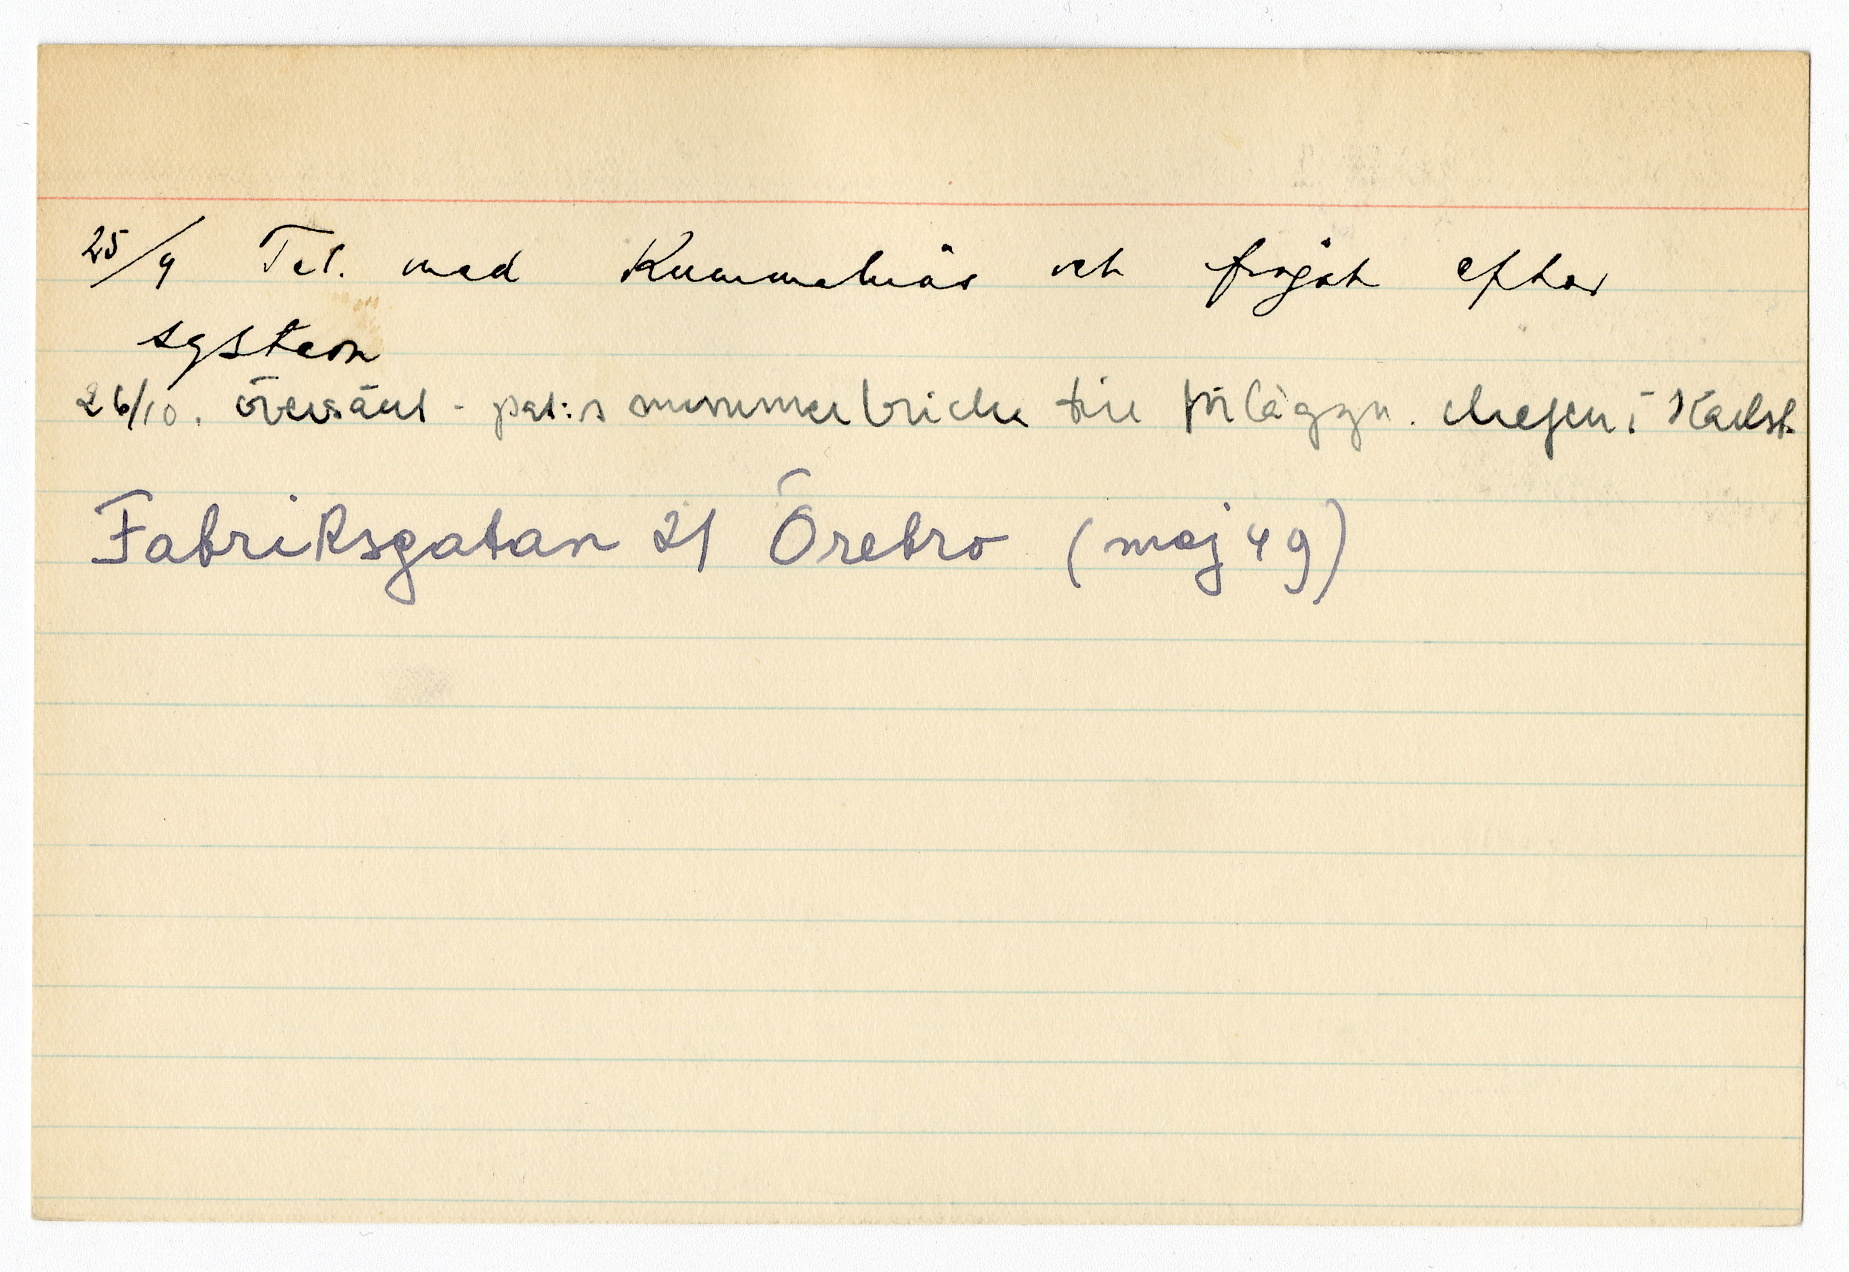 25/9 Tel. med Kummelnäs och frågat efter
systern
26/10. översänt - pat:s nummerbricka till förläggn. chefen i Karlst.
Fabriksgatan 21 Örebro (maj 49)